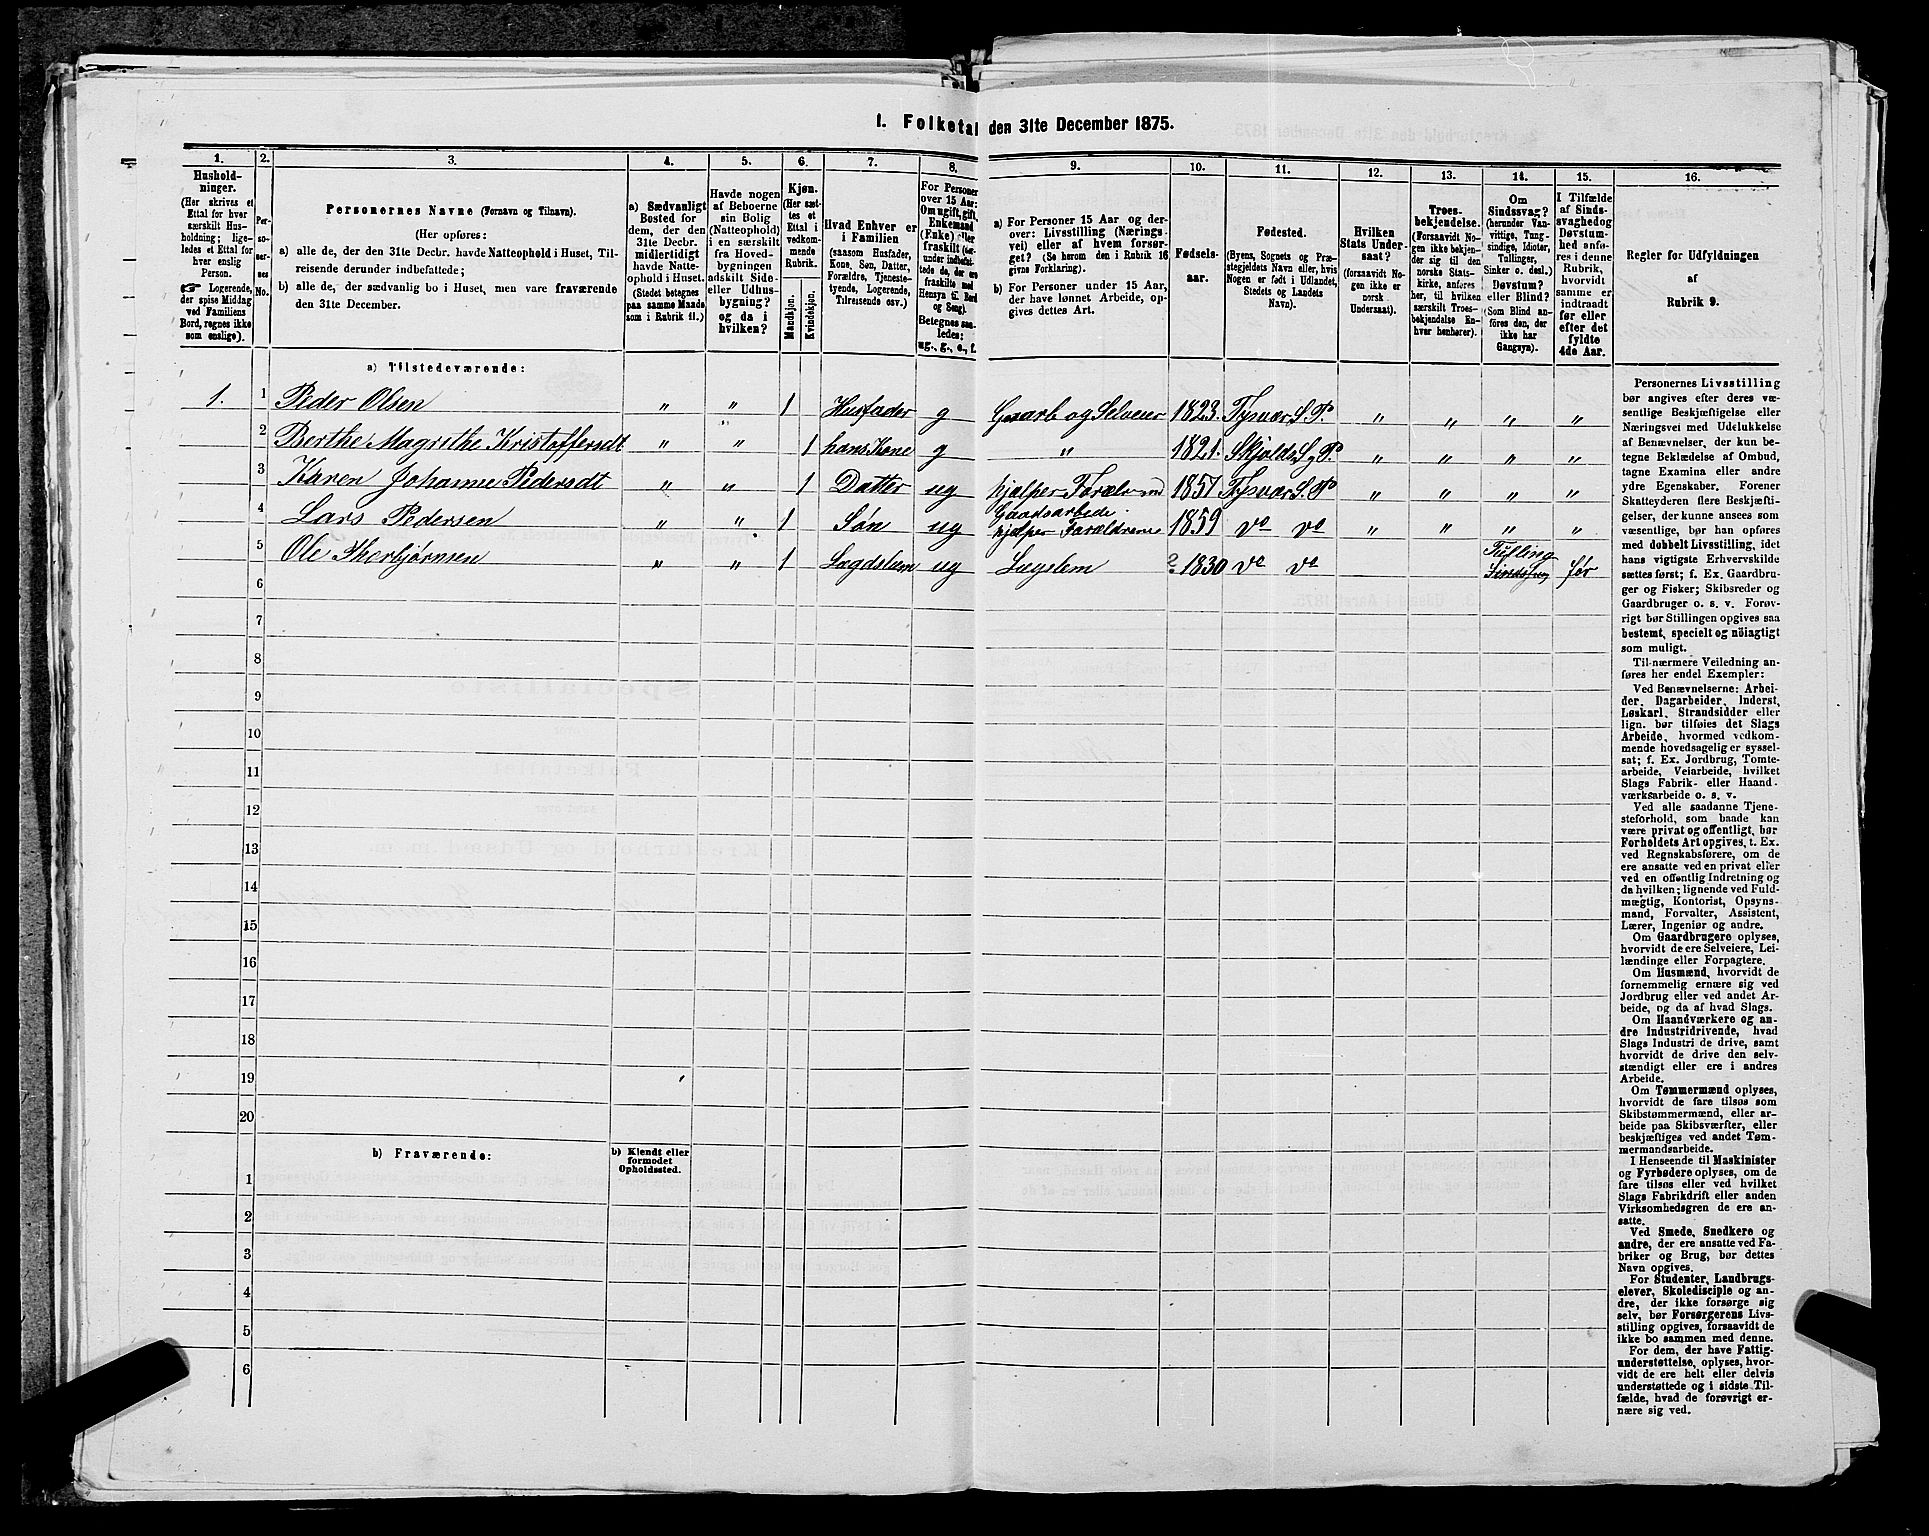 1. Folketal den 31te December 1875.
1. 2. 3. 4. 5. 6. 7. 8. 9. 10. 11. 12. 13. 14. 15. 16.
Hushold-
ninger.
(Her skrives et
Ettal for hver
særskilt Hus-
holdning; lige-
ledes et Ettal for
hver enslig
Person.
☛ Logerende,
der spise Middag
ved Familiens
Bord, regnes ikke
som enslige).
Per-
so-
ner-
nes
No.
Personernes Navne (Fornavn og Tilnavn).
(Her opføres:
a) alle de, der den 31te Decbr. havde Natteophold i Huset, Til-
reisende derunder indbefattede;
b) alle de, der sædvanlig bo i Huset, men vare fraværende
den 31te December.
a) Sædvanligt
Bosted for
dem, der den
31te Decbr.
midlertidigt
havde Natte-
ophold i Huset.
(Stedet betegnes
paa samme Maade
som i Rubrik 11.)
Havde nogen
af Beboerne
sin Bolig
(Natteophold)
i en særskilt
fra Hoved-
bygningen
adskilt Side-
eller Udhus-
bygning?
og da i
hvilken?
Kjøn.
(Her sæt-
tes et
Ettal i
vedkom-
mende
Rubrik.
Mandkjøn.
Kvindekjøn.
Hvad Enhver er
i Familien
(saasom Husfader,
Kone, Søn, Datter,
Forældre, Tjeneste-
tyende, Logerende,
Tilreisende osv.)
For Personer
over 15 Aar:
Om ugift, gift,
Enkemand
(Enke) eller
fraskilt (der-
under indbefat-
tede de, der ere
fraskilte med
Hensyn til Bord
og Seng).
Betegnes saa-
ledes:
ug., g., e., f.
a) For Personer 15 Aar og der-
over: Livsstilling (Nærings-
vei) eller af hvem forsør-
get? (Se herom den i Rubrik 16
givne Forklaring).
b) For Personer under 15 Aar,
der have lønnet Arbeide, op-
gives dettes Art.
Fødsels-
aar.
Fødested.
(Byens, Sognets og Præ-
stegjeldets Navn eller, hvis
Nogen er født i Udlandet,
Stedets og Landets
Navn).
Hvilken
Stats Under-
saat?
(forsaavidt No-
gen ikke er
norsk
Undersaat).
Troes-
bekjendelse.
(Forsaavidt No-
gen ikke bekjen-
der sig til den
norske Stats-
kirke, anføres
her, til hvilken
særskilt Troes-
bekjendelse En-
hver henhører).
Om
Sindssvag?
(herunder Van-
vittige, Tung-
sindige, Idioter,
Tullinger,
Sinker o. desl.)
Døvstum?
eller Blind?
(Som Blind an-
føres den, der
ikke har
Gangsyn).
I Tilfælde
af Sinds-
svaghed og
Døvstum-
hed anfø-
res i denne
Rubrik,
hvorvidt
samme er
indtraadt
før eller
efter det
fyldte
4de Aar.
Regler for Udfyldningen
af
Rubrik 9.
a) Tilstedeværende:
1. 1 Peder Olsen " " 1 Husfader g Gaarb og Selveier 1823. Tysvær S. P. " " " "
2 Berthe Magrethe Kristoffersdt " " 1 hans Kone g " 1821. Skjolds S. g P. " " " "
3 Karen Johanne Pedersdt " " 1 Datter ug hjælper 1857 Tysvær S. P " " " "
4 Lars Pedersen " " 1 Søn ug Gaardsarbeide
hjælper Forældrene 1859 do do " " " "
5 Ole Thorbjørnsen " " 1 Lægdslem ug Lægslem ? 1830 do do før
6
7
8
9
10
11
12
13
14
15
16
17
18
19
20
b) Fraværende:
b) Kjendt eller
formodet
Opholdssted.
1
2
3
4
5
6
Personernes Livsstilling
bør angives efter deres væ-
sentlige Beskjæftigelse eller
Næringsvei med Udelukkelse
af Benævnelser, der kun be-
tegne Beklædelse af Ombud,
tagne Examina eller andre
ydre Egenskaber. Forener
Skatteyderen flere Beskjæfti-
gelser, der kunne ansees som
væsentlige, bør han opføres
med dobbelt Livsstilling, idet
hans vigtigste Erhvervskilde
sættes først; f. Ex. Gaardbru-
ger og Fisker; Skibsreder og
Gaardbruger o. s. v. Forøv-
rigt bør Stillingen opgives saa
bestemt, specielt og nöiagtigt
som muligt.
Til nærmere Veiledning an-
føres her endel Exempler:
Ved Benævnelserne: Arbei-
der, Dagarbeider, Inderst,
Løskarl, Strandsidder eller
lign. bør tilføies det Slags
Arbeide, hvormed vedkom-
mende hovedsagelig er syssel-
sat; f. Ex. Jordbrug, Tomte-
arbeide, Veiarbeide, hvilket
Slags Fabrik- eller Haand-
værksarbeide o. s. v.
Ved alle saadanne Tjene-
steforhold, som baade kan
være privat og offentligt, bør
Forholdets Art opgives, t. Ex.
ved Regnskabsførere, om de
ere ansatte ved en privat eller
ved en offentlig Indretning og
da hvilken; lignende ved Fuld-
mægtig, Kontorist, Opsyns-
mand, Forvalter, Assistent,
Lærer, Ingeniør og andre.
Om Gaardbrugere oplyses,
hvorvidt de ere Selveiere, Lei-
lændinge eller Forpagtere.
Om Husmænd, hvorvidt de
fornemmelig ernære sig ved
Jordbrug eller ved andet Ar-
beide, og da af hvad Slags.
Om Haandværkere og an-
dre Industridrivende, hvad
Slags Industri de drive, samt
hvorvidt de drive den selv-
stændigt eller ere i andres
Arbeide.
Om Tømmermænd oplyses,
hvorvidt de fare tilsøs som
Skibstømmermænd, eller ar-
beide paa Skibsværfter, eller
beskjæftiges ved andet Tøm-
mermandsarbeide.
I Henseende til Maskinister
og Fyrbødere oplyses, om de
fare tilsøs eller ved hvilket
Slags Fabrikdrift eller anden
Virksomhedsgren de ere an-
satte.
Ved Smede, Snedkere og
andre, der ere ansatte ved Fa-
briker og Brug, bør dettes
Navn opgives.
For Studenter, Landbrugs-
elever, Skoledisciple og an-
dre, der ikke forsørge sig
selv, bør Forsørgerens Livs-
stilling opgives, forsaavidt de
ikke bo sammen med denne.
For dem, der have Fattig-
understøttelse, oplyses, hvor-
vidt de ere helt eller delvis
understøttede og i sidste Til-
fælde, hvad de forøvrigt er-
nære sig ved.